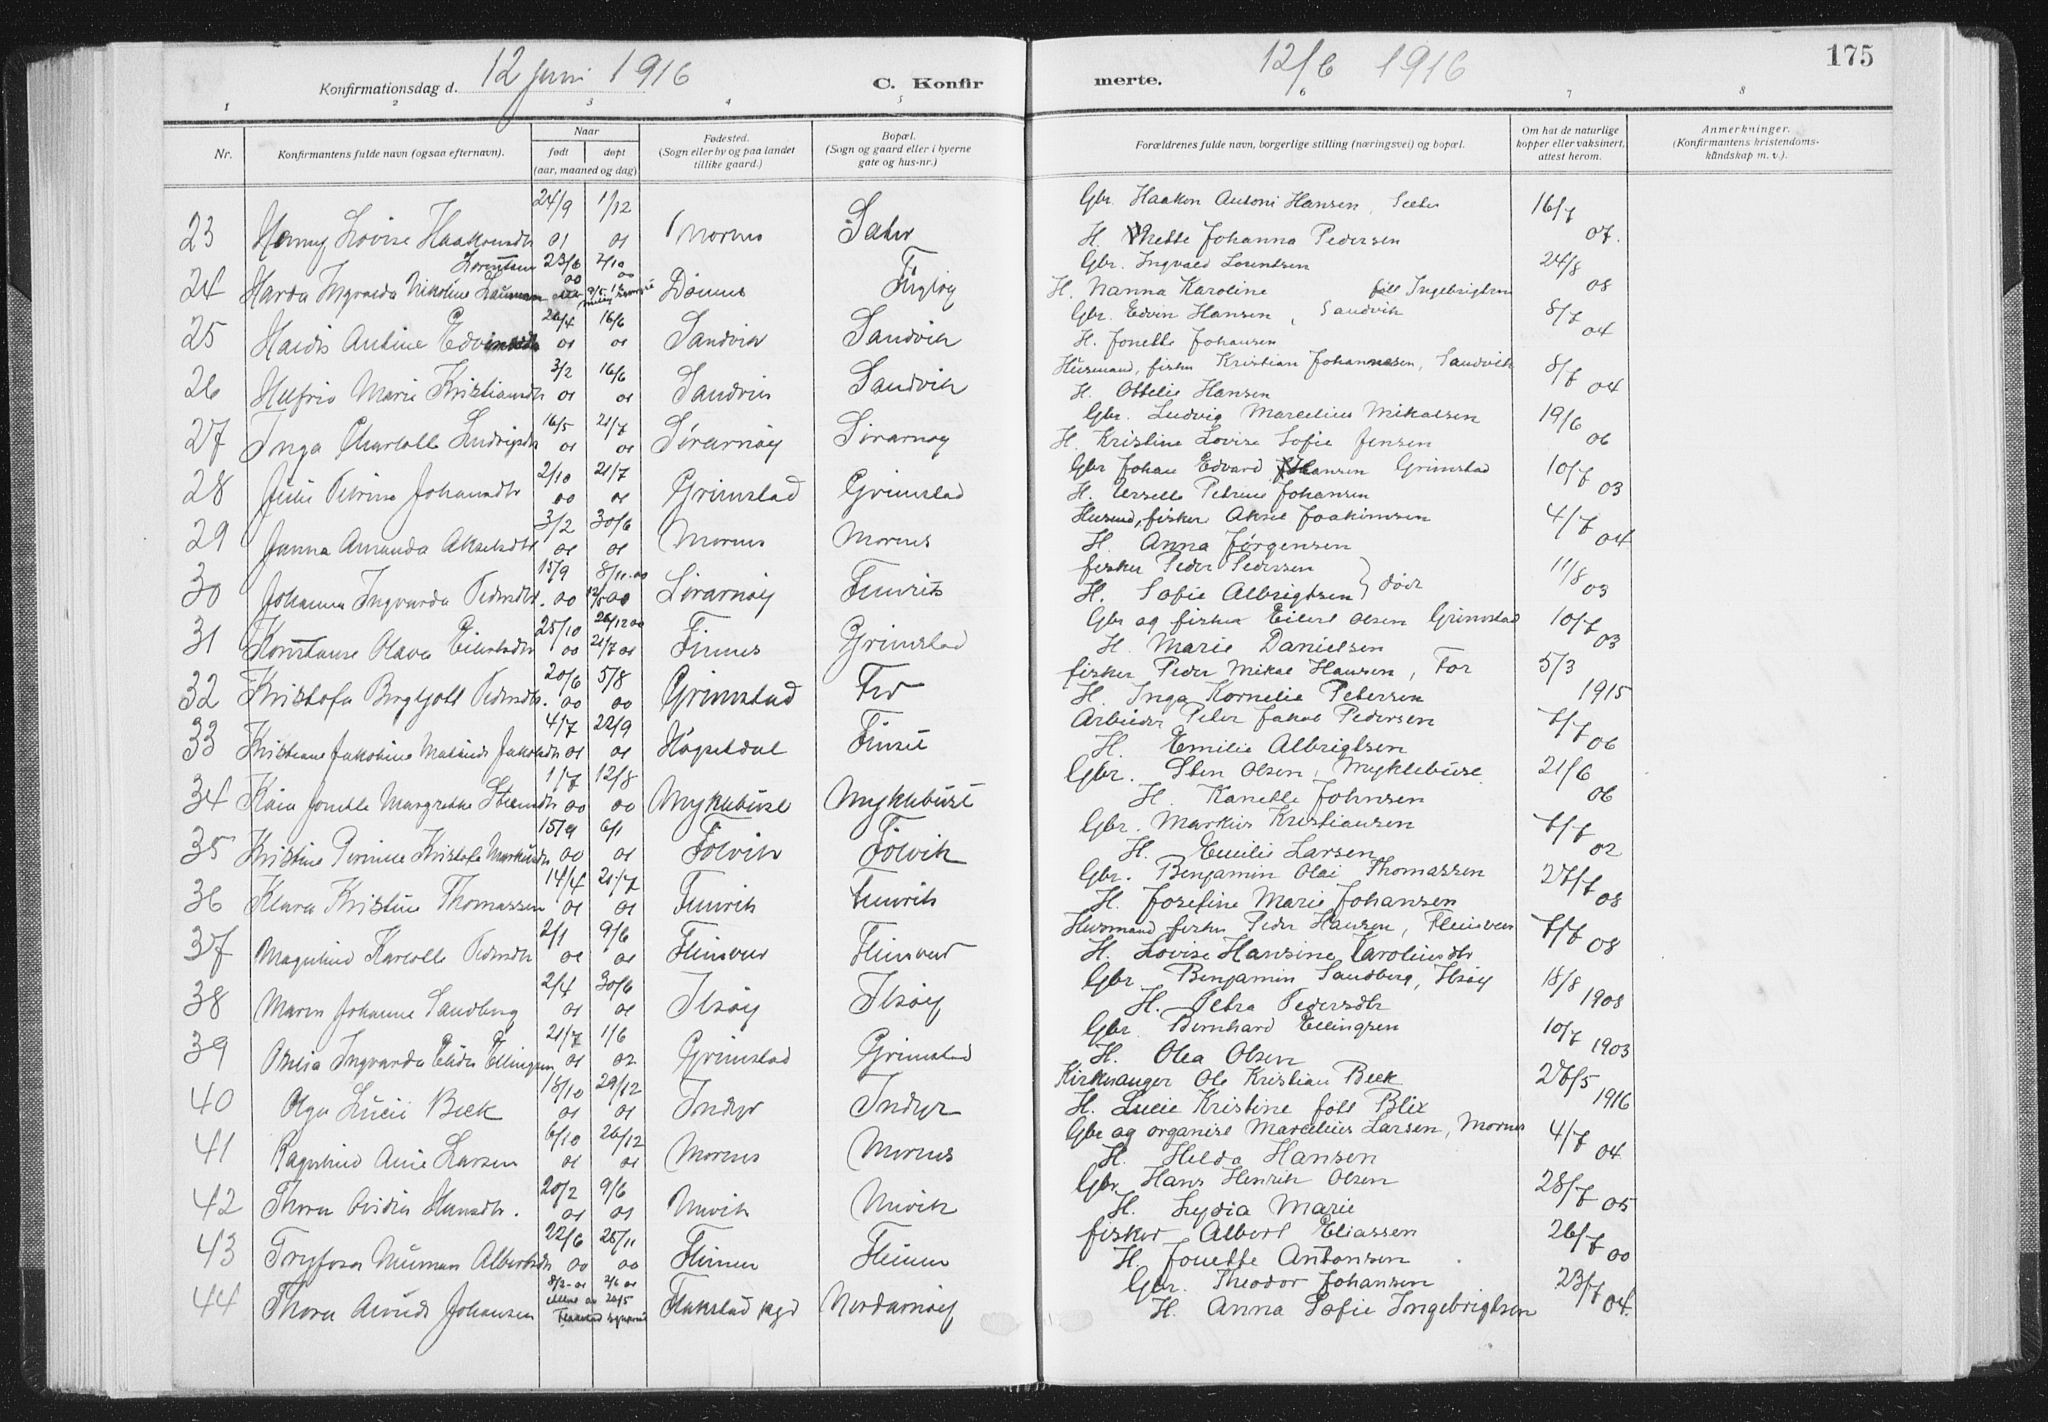 Konfirmationsdag d. 12 juni 1916 C. Konfir
merte. 12/6 1916 175
1 2 3 4 5 6 7 8
Nr. Konfirmantens fulde navn (ogsaa efternavn). Naar født døpt (aar, maaned og dag)
Fødested. (Sogn eller by og paa landet tillike gaard.)
Bopæl. (Sogn og gaard eller i byerne gate og hus-nr.)
Forældrenes fulde navn, borgerlige stilling (næringsvei) og bopæl.
Om hat de naturlige kopper eller vaksinert, attest herom.
Anmerkninger. (Konfirmantens kristendoms-kundskap m. v.).
24/9 1/12 Gbr. Haakon Antoni Hansen, 16/7
23 Lovise Haakonsdtr 01 01 Mornes Sæter H. Mette Johanna Pedersen 07.
Lorentsen 23/6 7/10 Gbr. Ingvald Lorentsen 24/8
24 Harda Ingvalda Nikoline 00 00 Dønnes H. Nanna Karoline født Ingebrigtsen 08
16/6 Gbr. Edvin Hansen, Sandvik 8/7
25 Haidis Antine 01 01 Sandvik Sandvik H. Jonette Johansen 04
3/2 16/6 Husmand, fisker Kristian Johannesen, Sandvik 8/7
26 Marie Kristiansdtr 01 01 Sandvik Sandvik H. Ottelie Hansen 04
16/5 21/7 Gbr. Ludvig Marcelius Mikalsen 19/6
27 Inga Charlotte Ludvigsdtr 01 01 Sørarnøy Sørarnøy H. Kristine Lovise Sofie Jensen 06
2/10 21/7 Gbr Johan Edvard Johansen Grimstad 10/7
28 Petrine Johansdtr 00 01 Grimstad Grimstad H. Petrine Johansen 03
3/2 30/6 Husmd, fisker Aksel Joakimsen 4/7
29 Janna Amanda Akselsdtr 01 01 Mornes Mornes H. Anna Jørgensen 04
15/9 8/11-00 fisker Peder Pedersen 11/8
30 Johanna Ingvarda Pedersdtr. 00 12/5 00 Sørarnøy H. Sofie Albrigtsen } død 03
25/10 26/12 00 Gbr og fisker Eilert Olsen Grimstad 10/7
31 Konstanse Olava Eilertsdtr 00 21/7 01 Finnes Grimstad H. Marie Danielsen 03
20/6 5/8 fisker Peder Mikal Hansen, For 5/3
32 Kristofa Bergljott Pedersdtr. 00 00 Grimstad For H. Inga Kornelie Petersen 1915
4/7 22/9 Arbeider Peter Jakob Pedersen 7/7
33 Kristiane Jakobine 01 01 Høgsetdal Finset H. Emilie Albrigtsen 06
1/7 12/8 Gbr. Sten Olsen, Myklebust 21/6
34 Jonette Margrethe Stensdtr 00 00 Myklebust Myklebust H. Kanette Johnsen 06
15/9 6/1 Gbr. Markus Kristiansen 7/7
35 Kristine Kristofa Markusdtr 00 01 Følvik Følvik H. Emilie Larsen 02
14/4 21/7 Gbr. Benjamin Olai Thomassen 27/7
36 Klara Kristine Thomassen 01 01 H. Josefine Marie Johansen 08
2/1 9/6 Husmand fisker Peder Hansen, Fleinvær 7/7
37 Magnhild Karlotte Pedersdtr 01 01 Fleinvær Fleinvær H. Lovise Hansine Carolinesdtr 08
2/4 30/6 Gbr Benjamin Sandberg, Ilsøy 18/8
38 Maren Johanne Sandberg 01 01 Ilsøy Ilsøy H. Petra Pedersdtr 1908
21/7 1/6 Gbr Bernhard Ellingsen 10/7
39 Ingvarda Ellingsen 01 02 Grimstad Grimstad H. Olea Olsen 1903
18/10 29/12 Kirkesanger Ole Kristian Beck 27/5
40 Olga Lucie Beck 01 01 Indyr Indyr H. Lucie Kristine født Blix 1916
6/10 26/12 Gbr og organist Marcelius Larsen, Mornes 4/7
41 Ragnhild Anie Larsen 01 01 Mornes Mornes H. Helda Hansen 04
20/2 9/6 Gbr Hans Henrik Olsen 28/7
42 Thora Hansdtr. 01 01 Nuvik Nuvik H. Lydia Marie 05
22/6 25/11 fisker Albert Eliassen 26/7
43 Tryfosa Albertsdtr 00 00 H. Jonette Antonsen 00
8/2-01 2/6 01 Gbr. Theodor Johansen 23/7
44 Thora Johansen Flakstad pgd Nordarnøy H. Anna Sofie Ingebrigtsen 04.